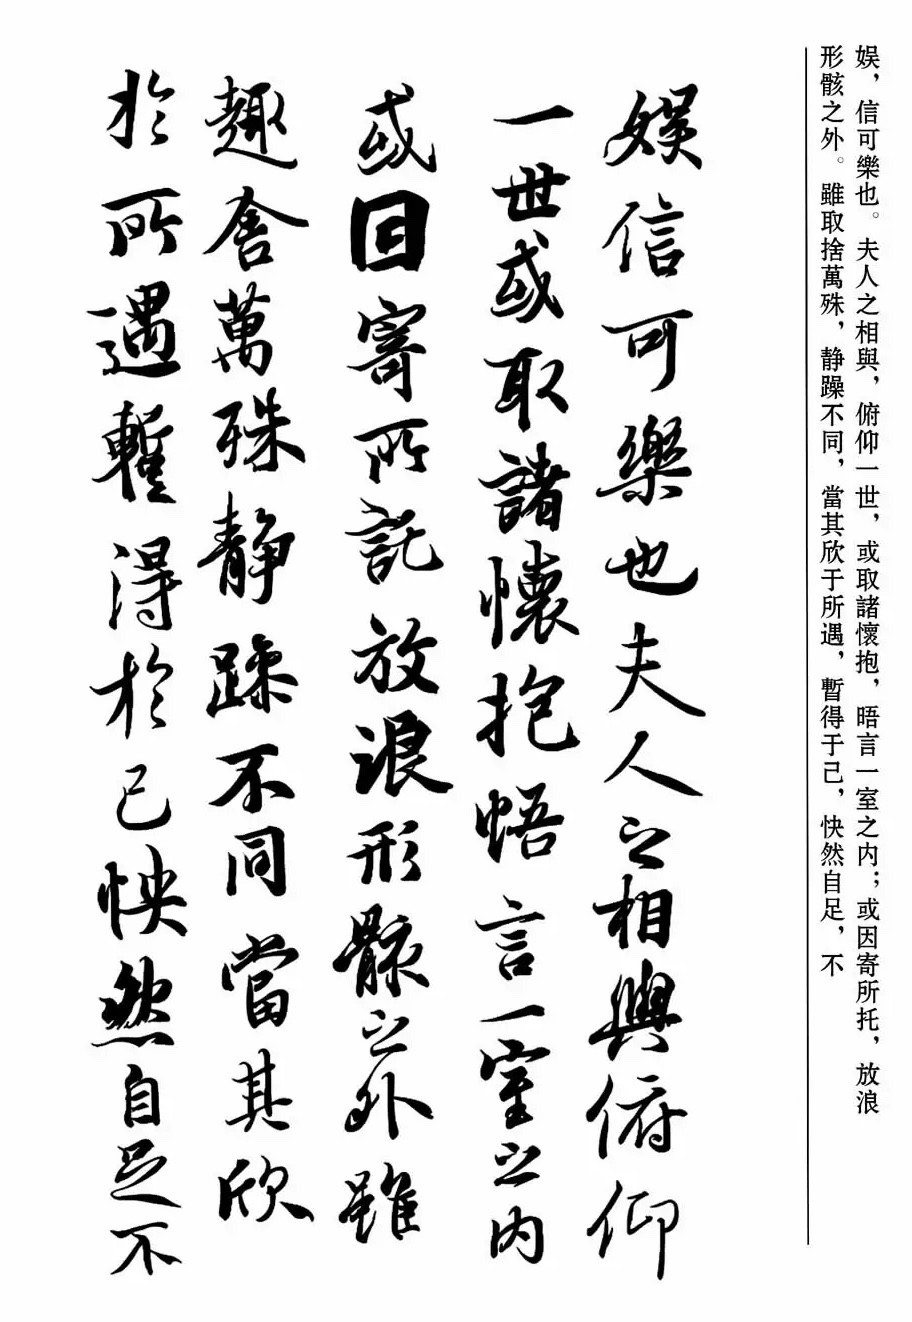 娱，信可樂也。夫人之相與，俯仰一世，或取諸懷抱，晤言一室之内；或因寄所托，放浪
形骸之外。雖取捨萬殊，静躁不同，當其欣于所遇，暫得于己，快然自足，不
娱信可樂也夫人之相與俯仰
一世或取諸懷抱悟言一室之内
或因寄所託放浪形骸之外雖
趣舍萬殊静躁不同當其欣
於所遇暫得於己怏然自足不